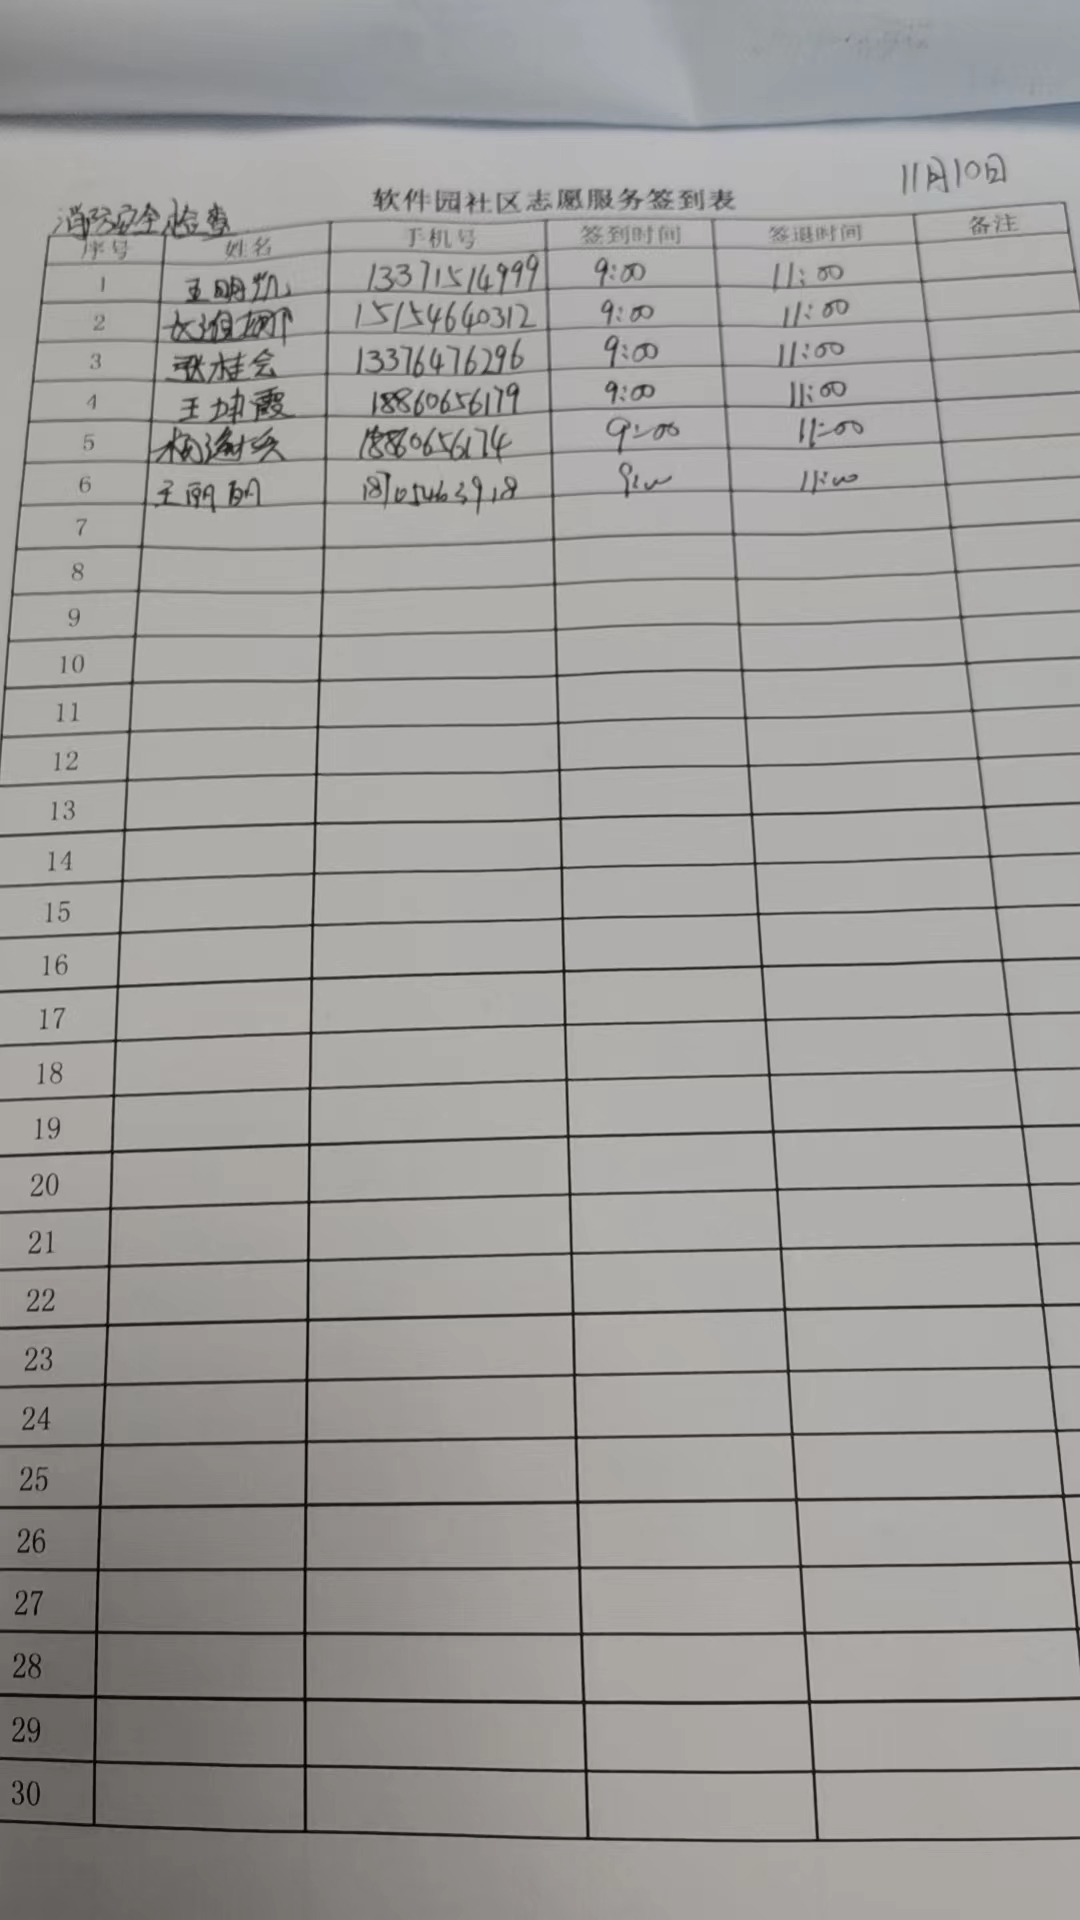 11月10日
软件园社区志愿服务签到表
消防安全检查
序号 姓名 手机号 签到时间 签退时间 备注
1 王明凯 13371514999 9:00 11:00
2 15154640312 9:00 11:00
3 张桂会 13376476296 9:00 11:00
4 王坤霞 18860656179 9:00 11:00
5 18860656174 9:00 11:00
6 王丽丽 18705463918 9:00 11:00
7
8
9
10
11
12
13
14
15
16
17
18
19
20
21
22
23
24
25
26
27
28
29
30